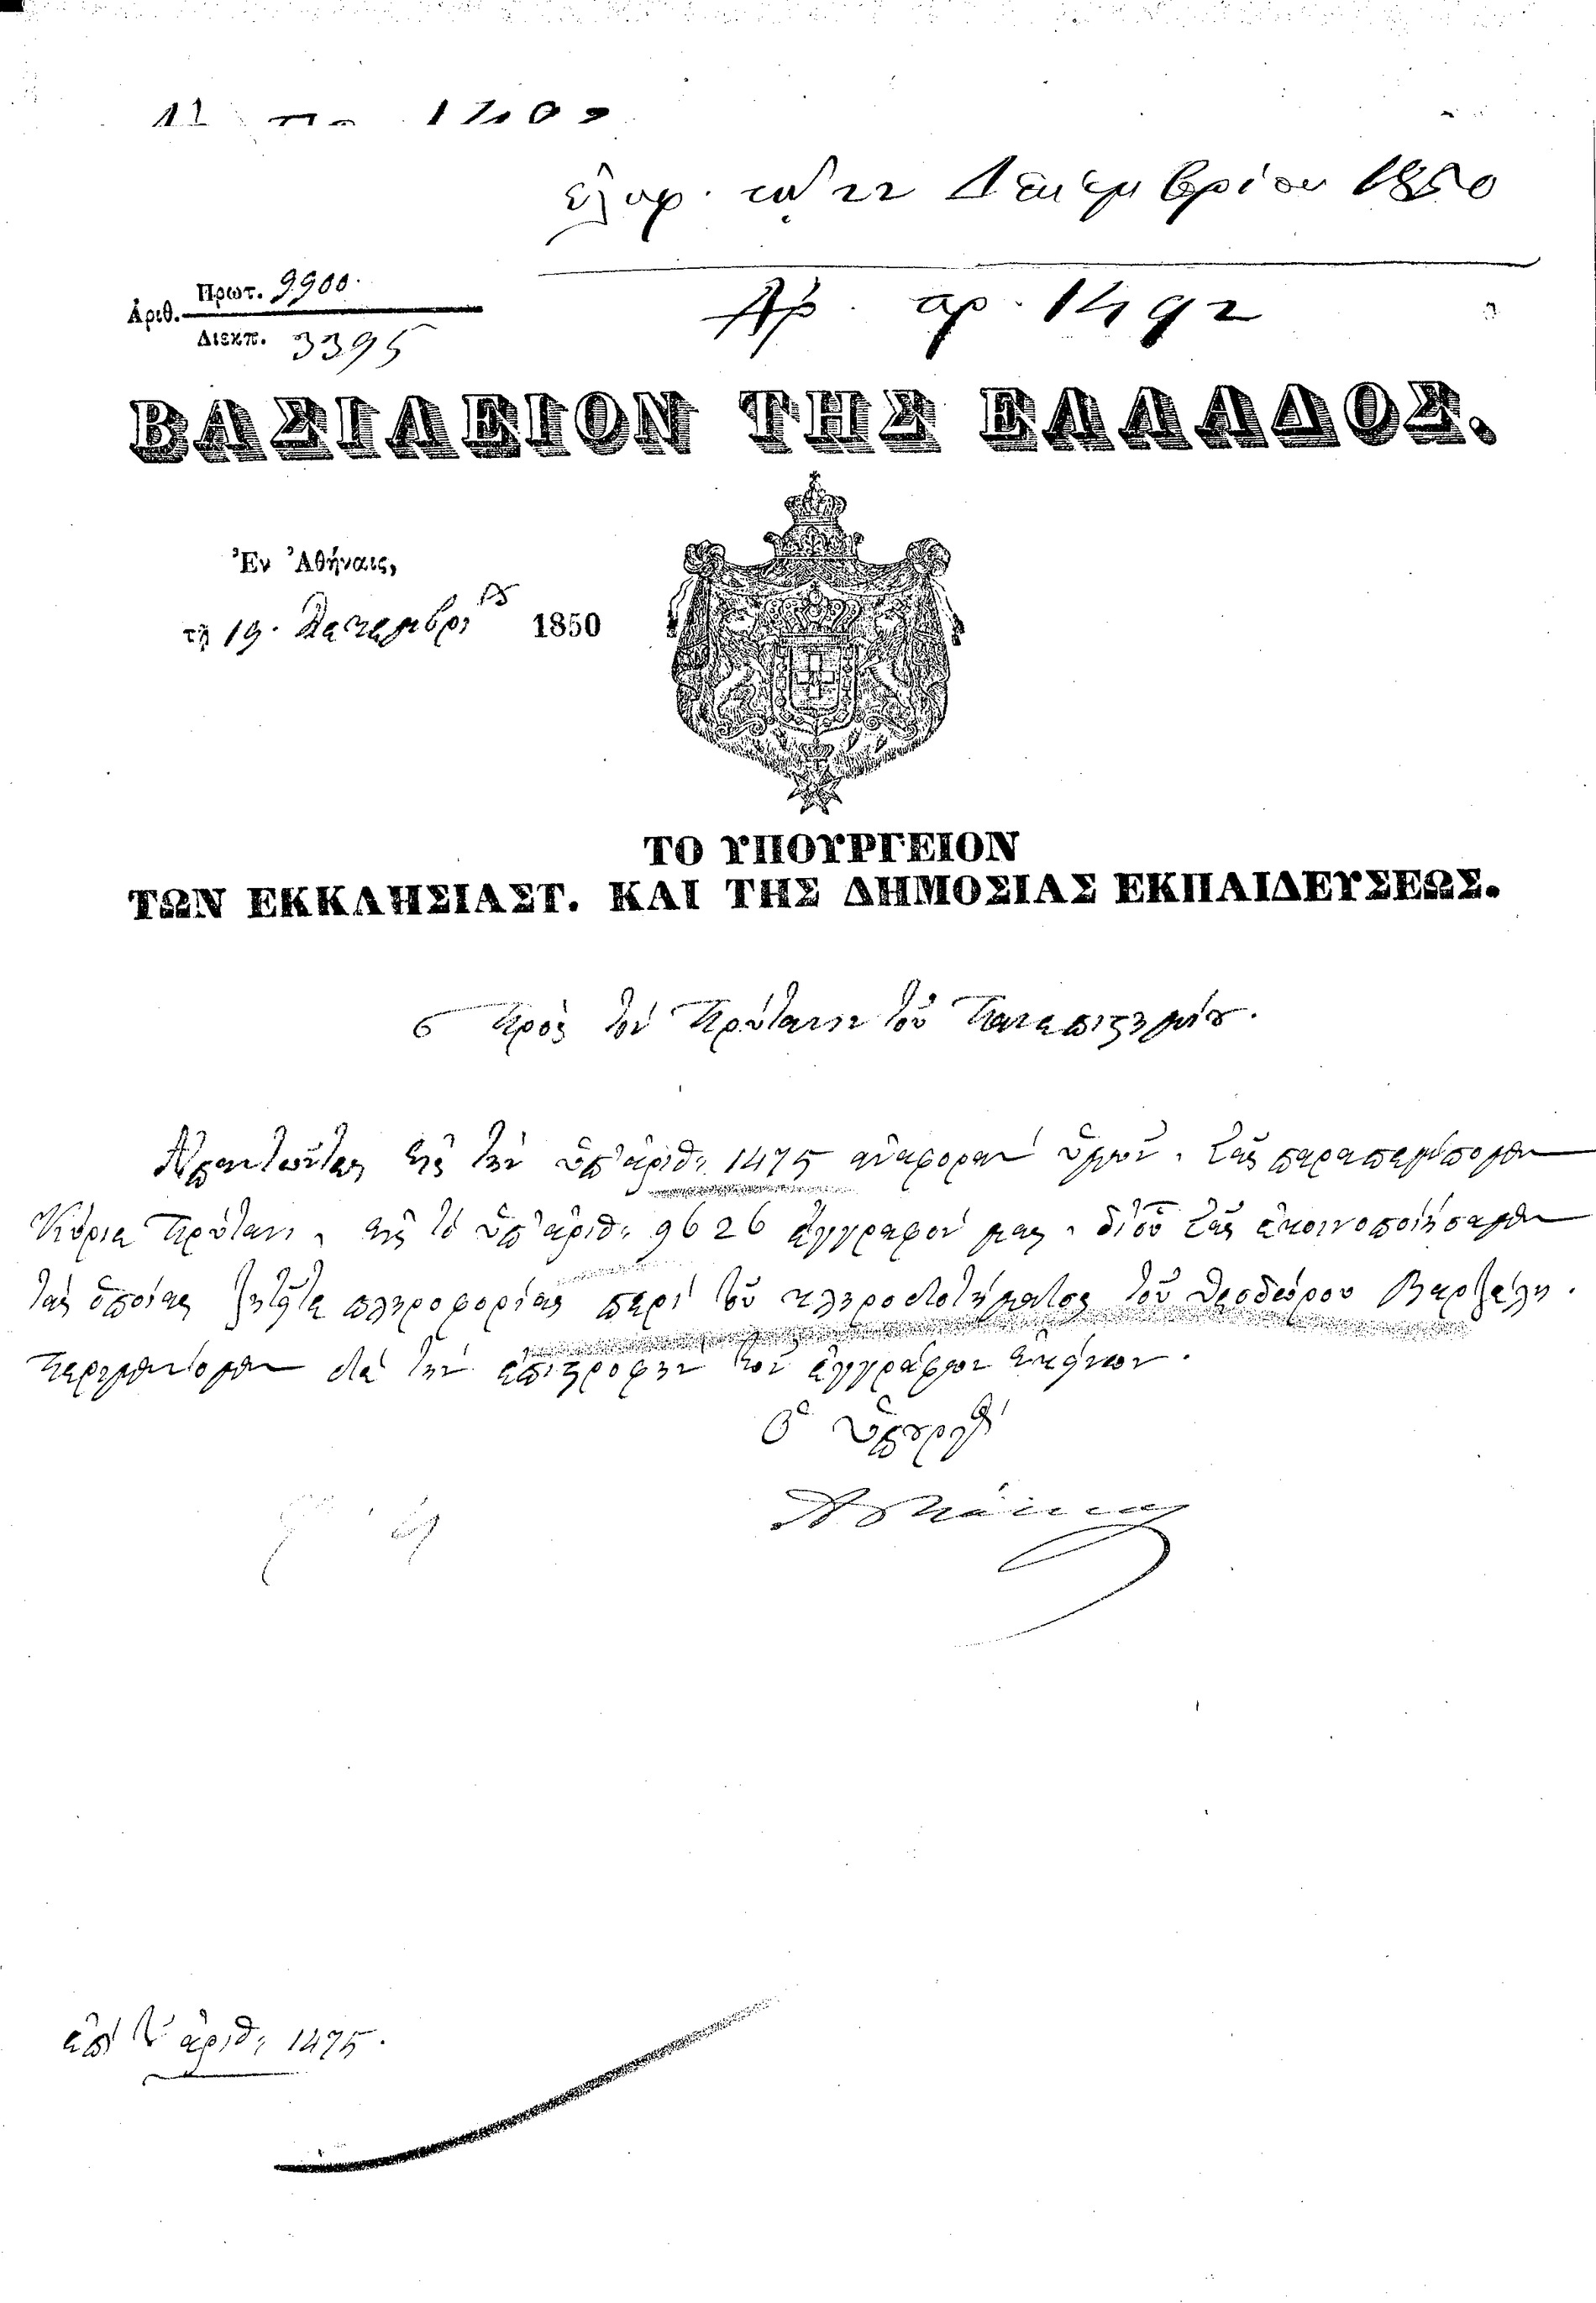 ἐλήφ. τῇ 22 Δεκεμβρίου 1850
Ἀρ. πρ. 1492
Ἀριθ. Πρωτ. 9900.
Διεκπ. 3395
ΒΑΣΙΛΕΙΟΝ ΤΗΣ ΕΛΛΑΔΟΣ.
Ἐν Ἀθήναις,
τῇ 19. Δεκεμβρίου 1850
ΤΟ ΥΠΟΥΡΓΕΙΟΝ
ΤΩΝ ΕΚΚΛΗΣΙΑΣΤ. ΚΑΙ ΤΗΣ ΔΗΜΟΣΙΑΣ ΕΚΠΑΙΔΕΥΣΕΩΣ.
Πρὸς τὸν Πρύτανιν τοῦ Πανεπιστημίου.
Ἀπαντῶντες εἰς τὴν ὑπ' ἀριθ: 1475 ἀναφορὰν ὑμῶν, Σᾶς παραπέμπομεν
Κύριε Πρύτανι, εἰς τὸ ὑπ' ἀριθ: 9626 ἔγγραφόν μας, δι' οὗ Σᾶς ἐκοινοποιήσαμεν
τὰς ὁποίας ζητεῖτε πληροφορίας περὶ τοῦ κληροδοτήματος τοῦ Θεοδώρου Βαρζέλη.
Περιμένομεν δὲ τὴν ἐπιστροφὴν τῶν ἐγγράφων ἐκείνων.
Ὁ Ὑπουργὸς
ἐπὶ τοῦ ἀριθ: 1475.